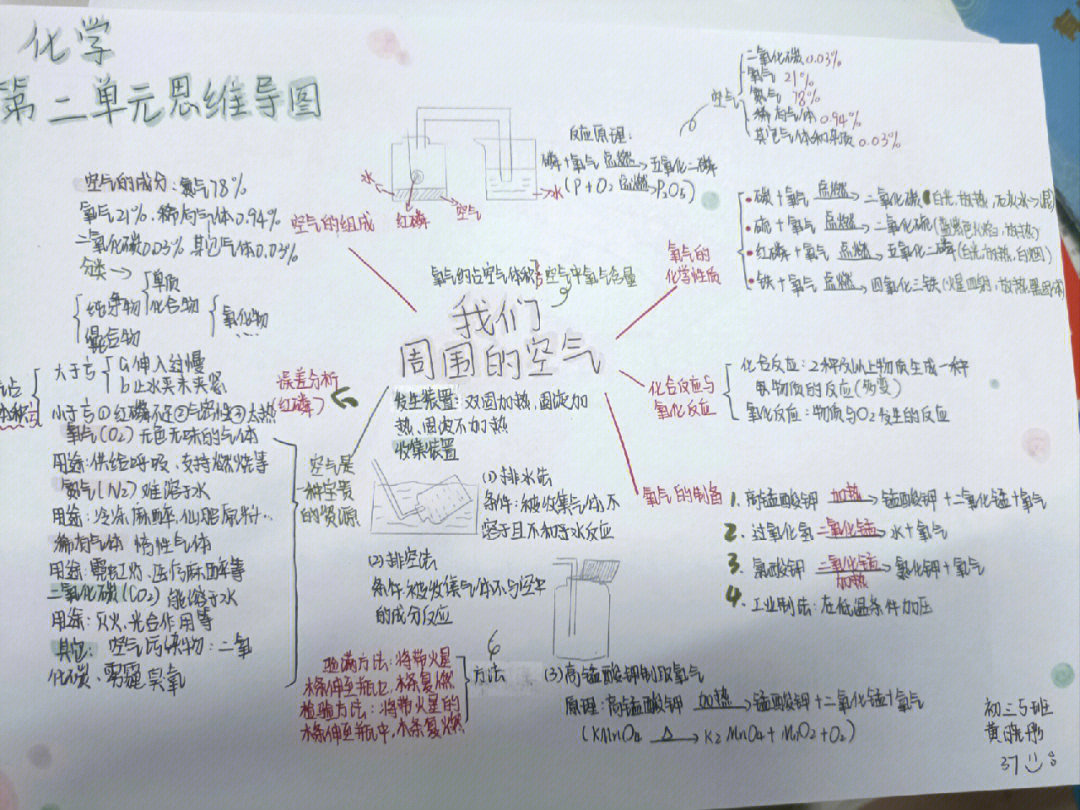 化学
第二单元思维导图
空气的成分:氮气78%
氧气21%.稀有气体0.94%
二氧化碳0.03% 其它气体0.03%
分类→
单质
纯净物 化合物 氧化物
混合物
大于
a.伸入过慢
b.止水夹未夹紧
小于 ①红磷不足②气密性③太热
误差分析
(红磷)
氧气(O2)无色无味的气体
用途:供给呼吸、支持燃烧等
氮气(N2)难溶于水
用途:冷冻麻醉、
稀有气体 惰性气体
用途:霓虹灯、医疗麻醉等
二氧化碳(CO2)能溶于水
用途:灭火、光合作用等
其它:空气污染物:二氧
化碳、雾霾臭氧
空气是
一种宝贵
的资源
空气的组成
水
红磷
空气
水
反应原理:
磷+氧气 点燃→ 五氧化二磷
(P+O2 点燃→P2O5)
空气
二氧化碳0.03%
氧气21%
氮气78%
稀有气体0.94%
其它气体和杂质0.03%
氧气约占空气体积
空气中氧气含量
我们
周围的空气
氧气的
化学性质
·碳+氧气 点燃→ 二氧化碳
·硫+氧气 点燃→ 二氧化硫(蓝紫色火焰,放热)
·红磷+氧气 点燃→ 五氧化二磷(白光,放热,白烟)
·铁+氧气 点燃→ 四氧化三铁
化合反应与
氧化反应
化合反应:2种及以上物质生成一种
另物质的反应(多变)
氧化反应:物质与O2发生的反应
发生装置:双固加热,固液加
热,固液不加热
收集装置
(1)排水法
条件:被收集气体不
溶于且不和于水反应
(2)排空法
条件:被收集气体不与空中
的成分反应
氧气的制备
1.高锰酸钾 加热→ 锰酸钾+二氧化锰+氧气
2.过氧化氢 二氧化锰→ 水+氧气
3.氯酸钾 二氧化锰 加热→ 氯化钾+氧气
4.工业制法:在低温条件加压
验满方法:将带火星
木条伸至瓶口,木条复燃
检验方法:将带火星的
木条伸至瓶中,木条复燃
方法
(3)高锰酸钾制取氧气
原理:高锰酸钾 加热→ 锰酸钾+二氧化锰+氧气
(KMnO4 △→ K2MnO4+MnO2+O2)
初三5班
37